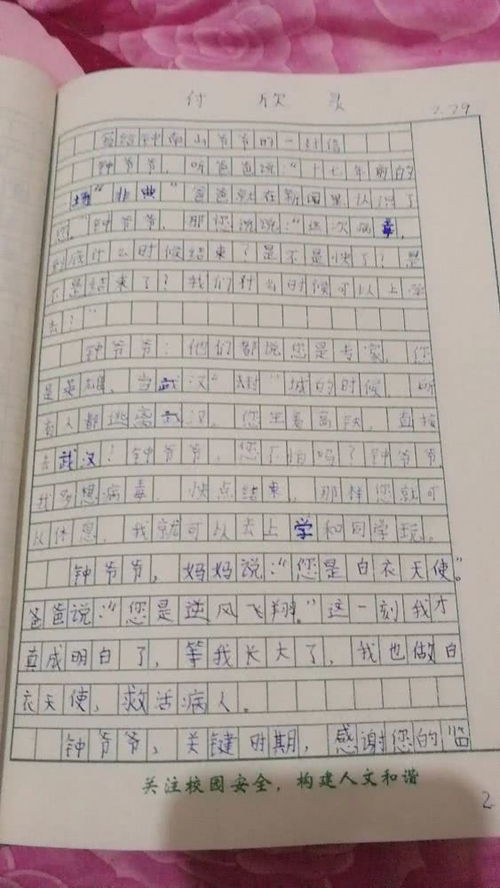 付欣灵
2.29
写给钟南山爷爷的一封信
钟爷爷，听爸爸说："十七年前的
一场"非典"爸爸就在新闻里认识了
您。"钟爷爷，那您说说："这次病毒，
到底什么时候结束？是不是快了？是
不是结束了？我们什么时候可以上学
去？"
钟爷爷：他们都说您是专家，您
是英雄，当武汉"封"城的时候，所
有人都逃离武汉。您坐着高铁，直接
去武汉？钟爷爷，您不怕吗？钟爷爷，
我多想病毒，快点结束，那样您就可
以休息，我就可以去上学和同学玩。
钟爷爷，妈妈说："您是白衣天使。"
爸爸说："您是逆风飞翔。"这一刻我才
真成明白了，等我长大了，我也做白
衣天使，救活病人。
钟爷爷，关键时期，感谢您的
关注校园安全，构建人文和谐
2